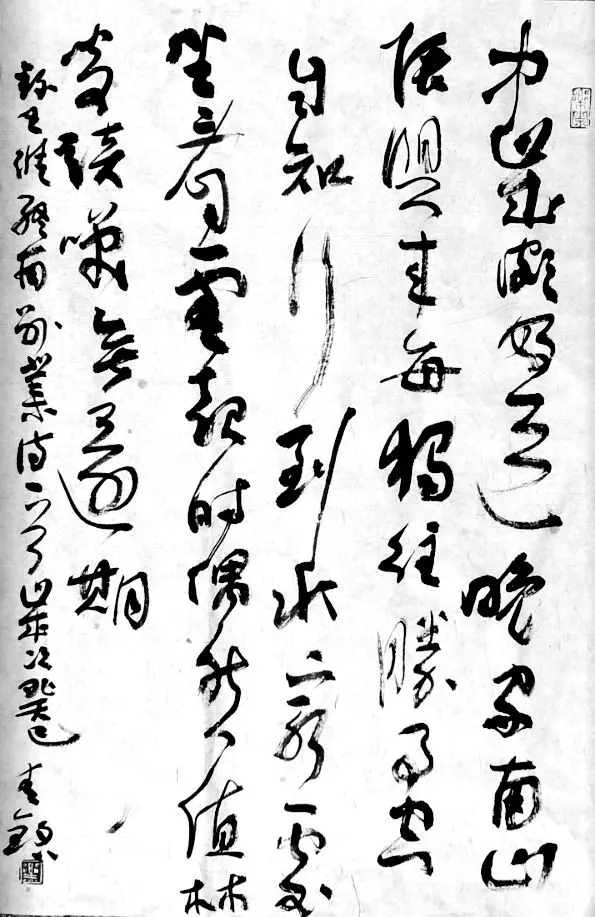 中歲頗好道晚家南山
陲興來每獨往勝事空
自知行到水窮處
坐看雲起時偶然值林
叟談笑無還期
錄王維終南別業詩一首歲次